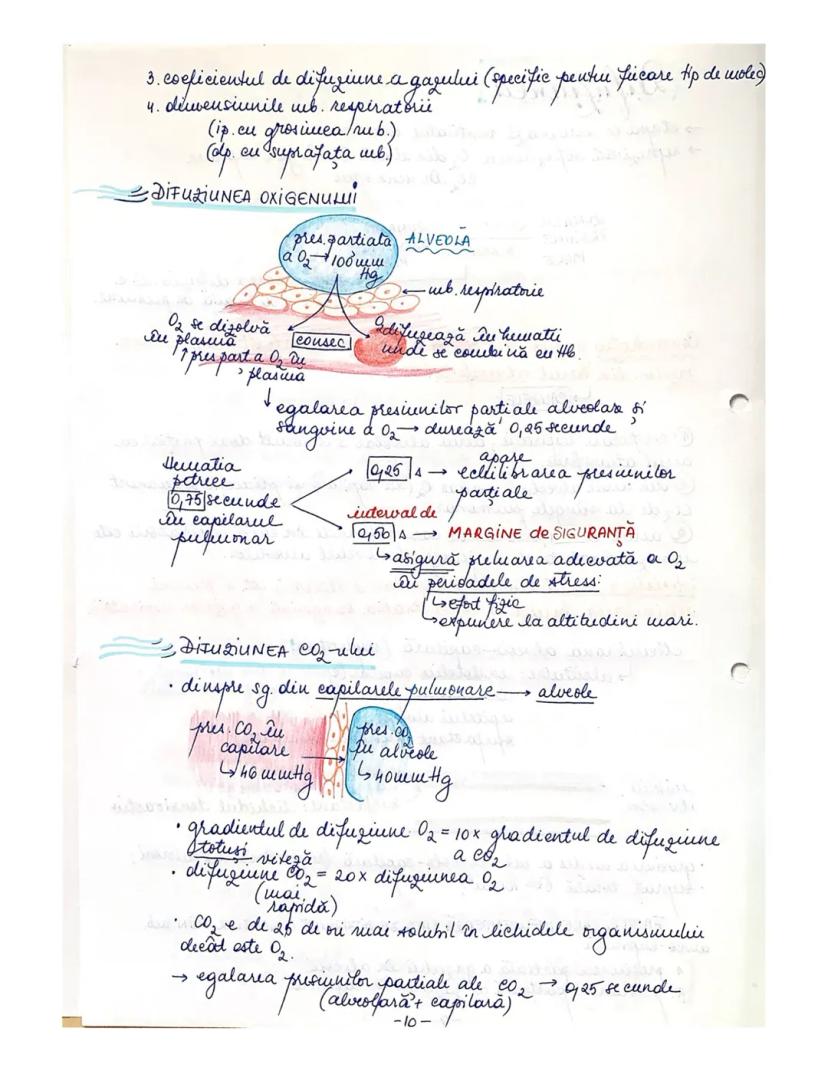 3. coeficientul de difuziune a gazului (specific pentru fiecare tip de molec)
4. dimensiunile mb. respiratorii
(ip. cu grosimea mb.)
(dp. cu suprafața mb.)
DIFUZIUNEA OXIGENULUI
pres. parțială
a O₂ → 100 mm
Hg
ALVEOLĂ
← mb. respiratorie
O₂ se dizolvă
în plasmă
consec
↑ pres part a O₂ în
plasmă
O₂ difuzează în hematii
unde se combină cu Hb.
↓ egalarea presiunilor parțiale alveolare și
sangvine a O₂ → durează 0,25 secunde
Hematia
petrece
0,75 secunde
în capilarul
pulmonar
apare
0,25 s → echilibrarea presiunilor
parțiale
interval de
0,50 s → MARGINE de SIGURANȚĂ
↳ asigură preluarea adecvată a O₂
în perioadele de stress:
↳ efort fizic
↳ expunere la altitudini mari.
DIFUZIUNEA CO₂-ului
• dinspre sg. din capilarele pulmonare → alveole
pres. CO₂ în
capilare
↳ 46 mmHg
pres. CO₂
în alveole
↳ 40mmHg
• gradientul de difuziune O₂ = 10x gradientul de difuziune
a CO₂
totuși viteză
• difuziune CO₂ = 20x difuziunea O₂
(mai
rapidă)
• CO₂ e de 25 de ori mai solubil în lichidele organismului
decât este O₂.
→ egalarea presiunilor parțiale ale CO₂ → 0,25 secunde
(alveolară + capilară)
-10-